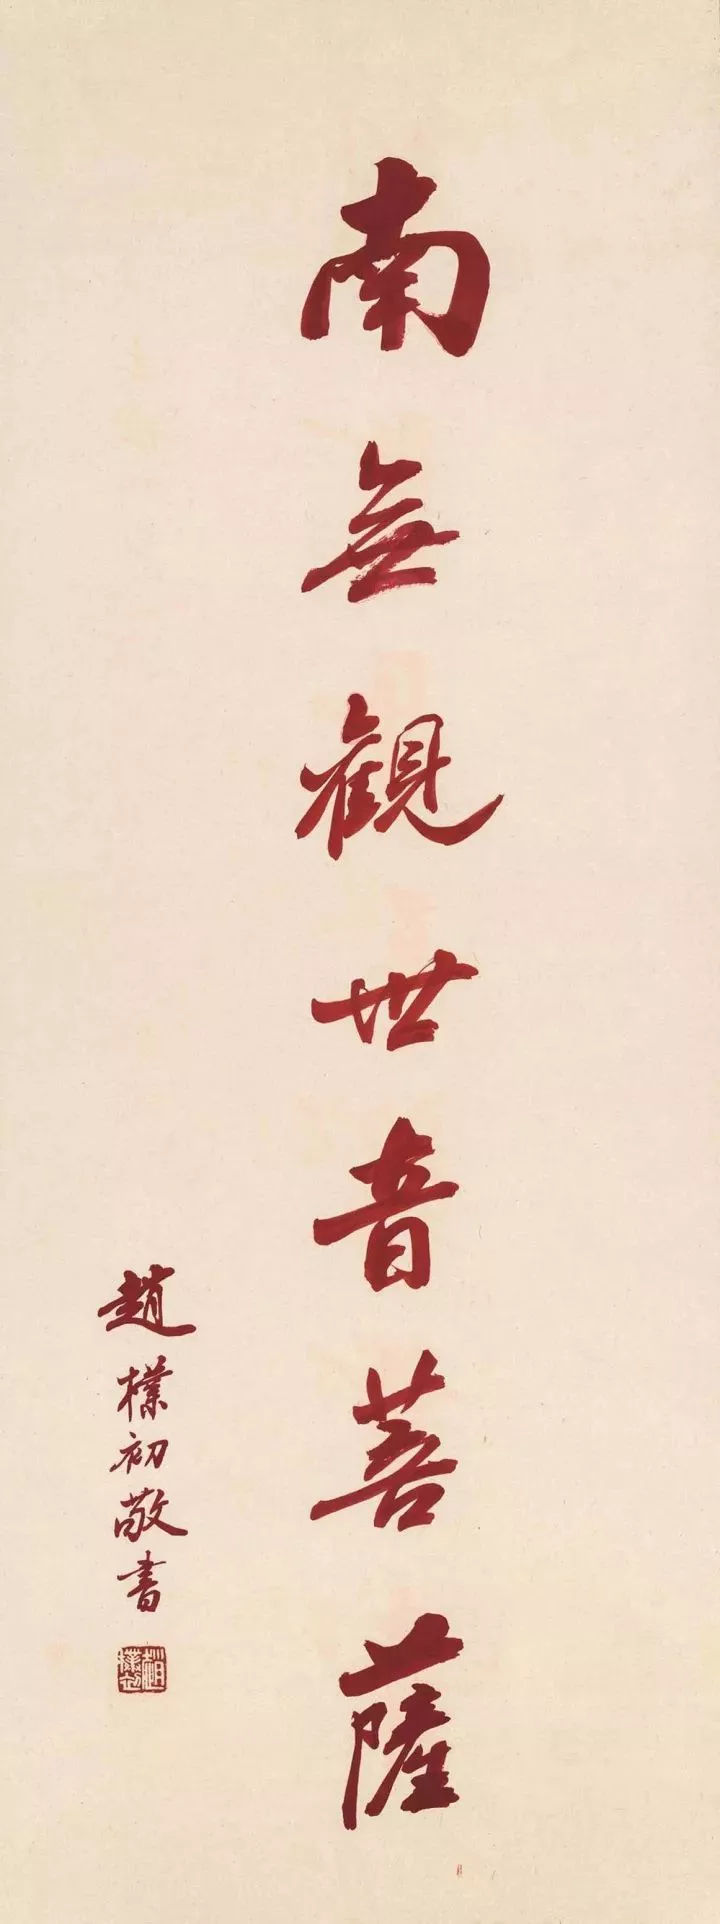 南無觀世音菩薩
趙樸初敬書
趙樸初